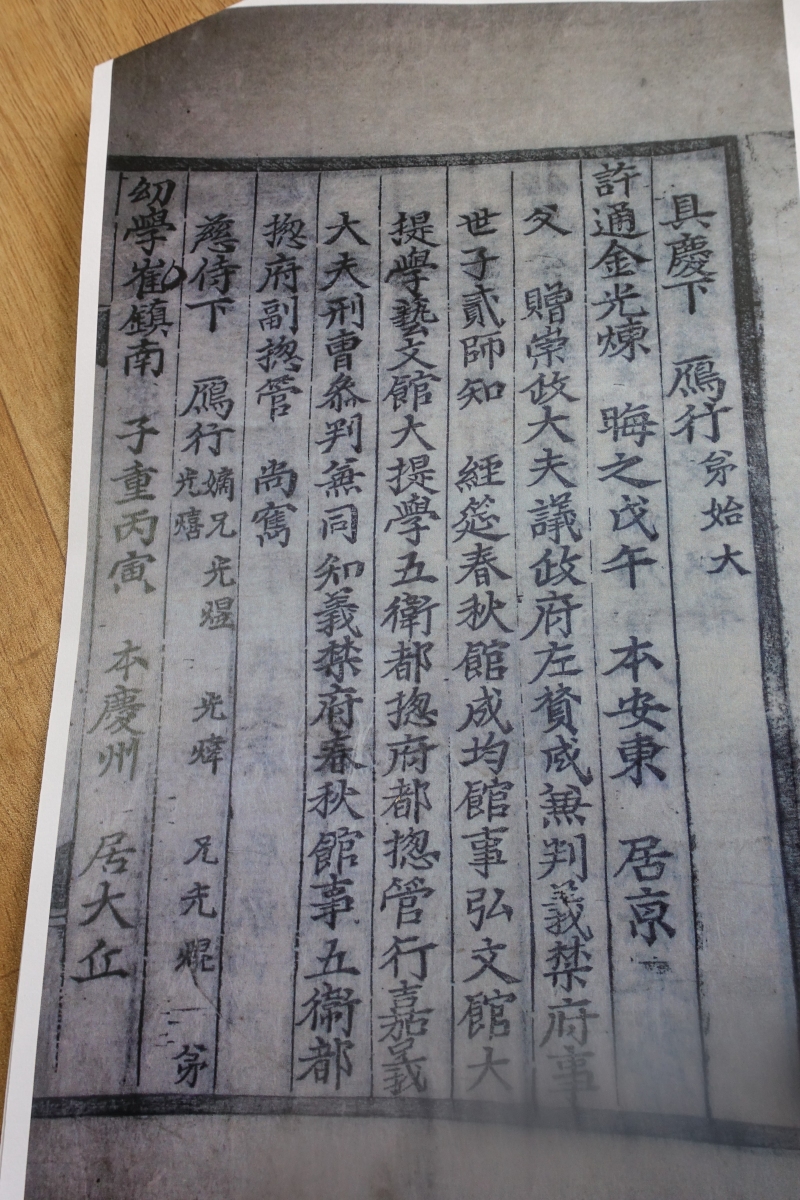 具慶下 鴈行 弟始大
許通金光煉 晦之戊午 本安東 居京
父 贈崇政大夫議政府左贊成兼判義禁府事
世子貳師知 經筵春秋館成均館事弘文館大
提學藝文館大提學五衛都摠府都摠管行嘉義
大夫刑曹叅判兼同知義禁府春秋館事五衛都
摠府副摠管 尚寯
慈侍下 鴈行 嫡兄光熅 光煒 兄光焜 弟光熺
幼學崔鎮南 子重丙寅 本慶州 居大丘